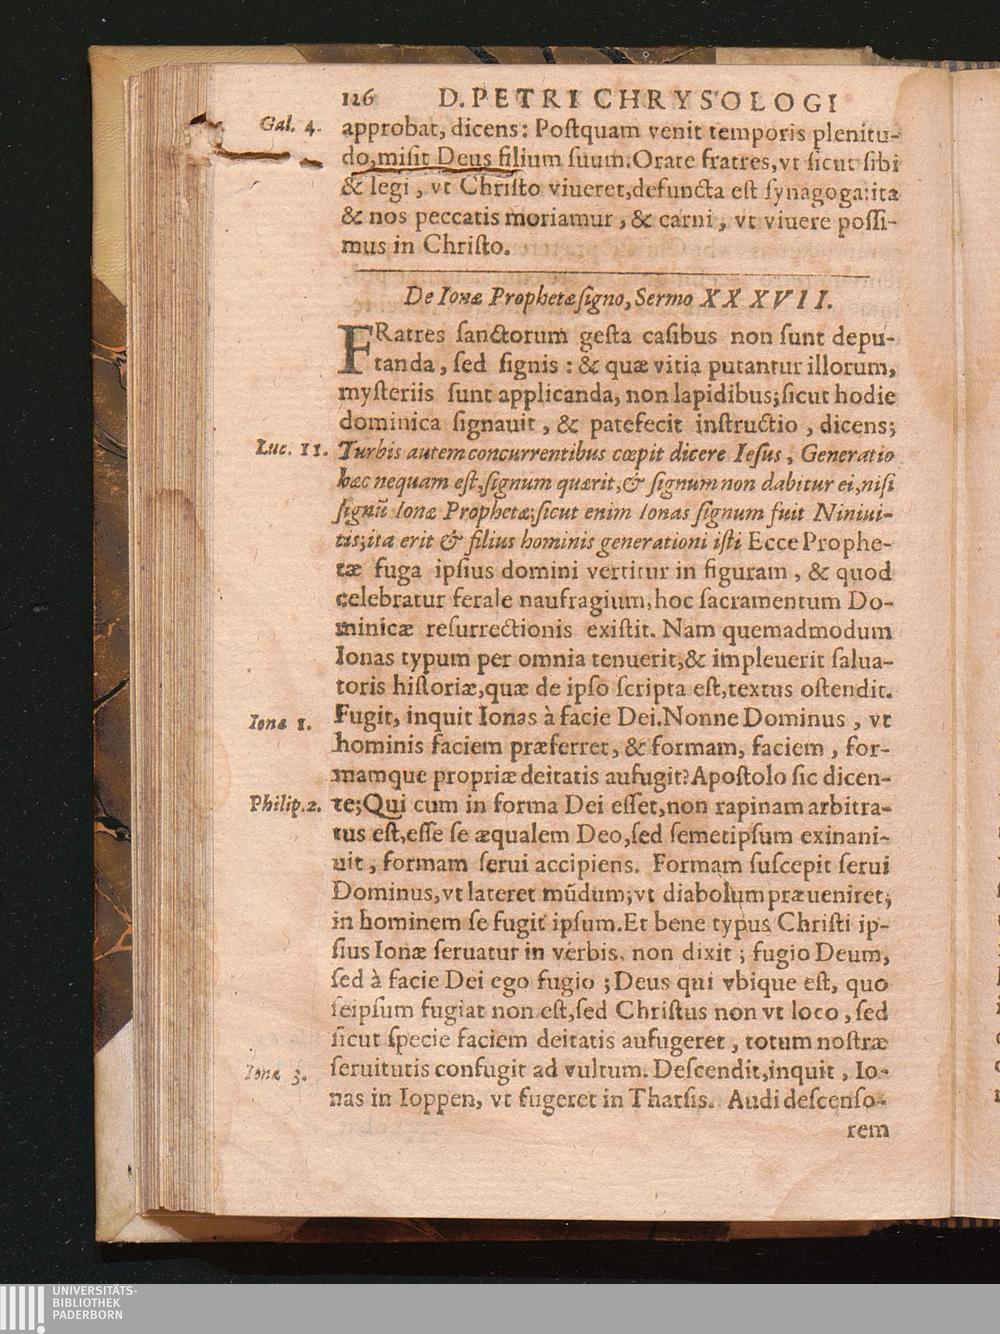 126 D. PETRI CHRYSOLOGI
Gal. 4. approbat, dicens: Poſtquam venit temporis plenitu-
do, miſit Deus filium ſuum. Orate fratres, vt ſicut ſibi
& legi, vt Chriſto viueret, defuncta eſt ſynagoga: ita
& nos peccatis moriamur, & carni, vt viuere poſſi-
mus in Chriſto.
De Ionæ Prophetæ ſigno, Sermo XXXVII.
FRatres ſanctorum geſta caſibus non ſunt depu-
tanda, ſed ſignis: & quæ vitia putantur illorum,
myſteriis ſunt applicanda, non lapidibus; ſicut hodie
dominica ſignauit, & patefecit inſtructio, dicens;
Luc. 11. Turbis autem concurrentibus cœpit dicere Ieſus, Generatio
hæc nequam eſt, ſignum quærit, & ſignum non dabitur ei, niſi
ſignũ Ionæ Prophetæ; ſicut enim Ionas ſignum fuit Niniui-
tis; ita erit & filius hominis generationi iſti Ecce Prophe-
tæ fuga ipſius domini vertitur in figuram, & quod
celebratur ferale naufragium, hoc ſacramentum Do-
minicæ reſurrectionis exiſtit. Nam quemadmodum
Ionas typum per omnia tenuerit, & impleuerit ſalua-
toris hiſtoriæ, quæ de ipſo ſcripta eſt, textus oſtendit.
Ionæ 1. Fugit, inquit Ionas à facie Dei. Nonne Dominus, vt
hominis faciem præferret, & formam, faciem, for-
mamque propriæ deitatis aufugit? Apoſtolo ſic dicen-
Philip. 2. te; Qui cum in forma Dei eſſet, non rapinam arbitra-
tus eſt, eſſe ſe æqualem Deo, ſed ſemetipſum exinani-
uit, formam ſerui accipiens. Formam ſuſcepit ſerui
Dominus, vt lateret mũdum; vt diabolum præueniret;
in hominem ſe fugit ipſum. Et bene typus Chriſti ip-
ſius Ionæ ſeruatur in verbis. non dixit; fugio Deum,
ſed à facie Dei ego fugio; Deus qui vbique eſt, quo
ſeipſum fugiat non eſt, ſed Chriſtus non vt loco, ſed
ſicut ſpecie faciem deitatis aufugeret, totum noſtræ
Ionæ 3. ſeruitutis confugit ad vultum. Deſcendit, inquit, Io-
nas in Ioppen, vt fugeret in Tharſis. Audi deſcenſo-
rem
UNIVERSITÄTS-
BIBLIOTHEK
PADERBORN